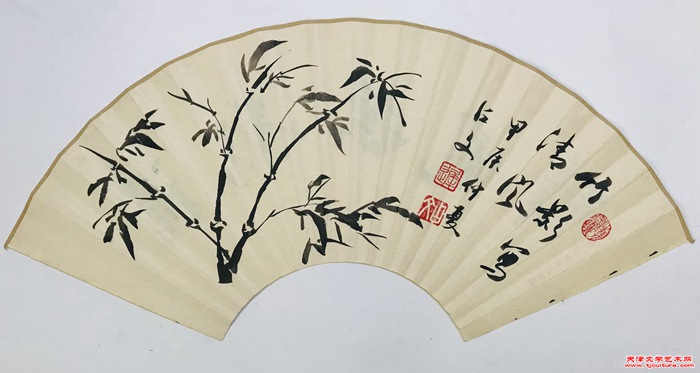 竹影寫
清风
甲辰仲夏
天津文学艺术网
www.tjculture.com